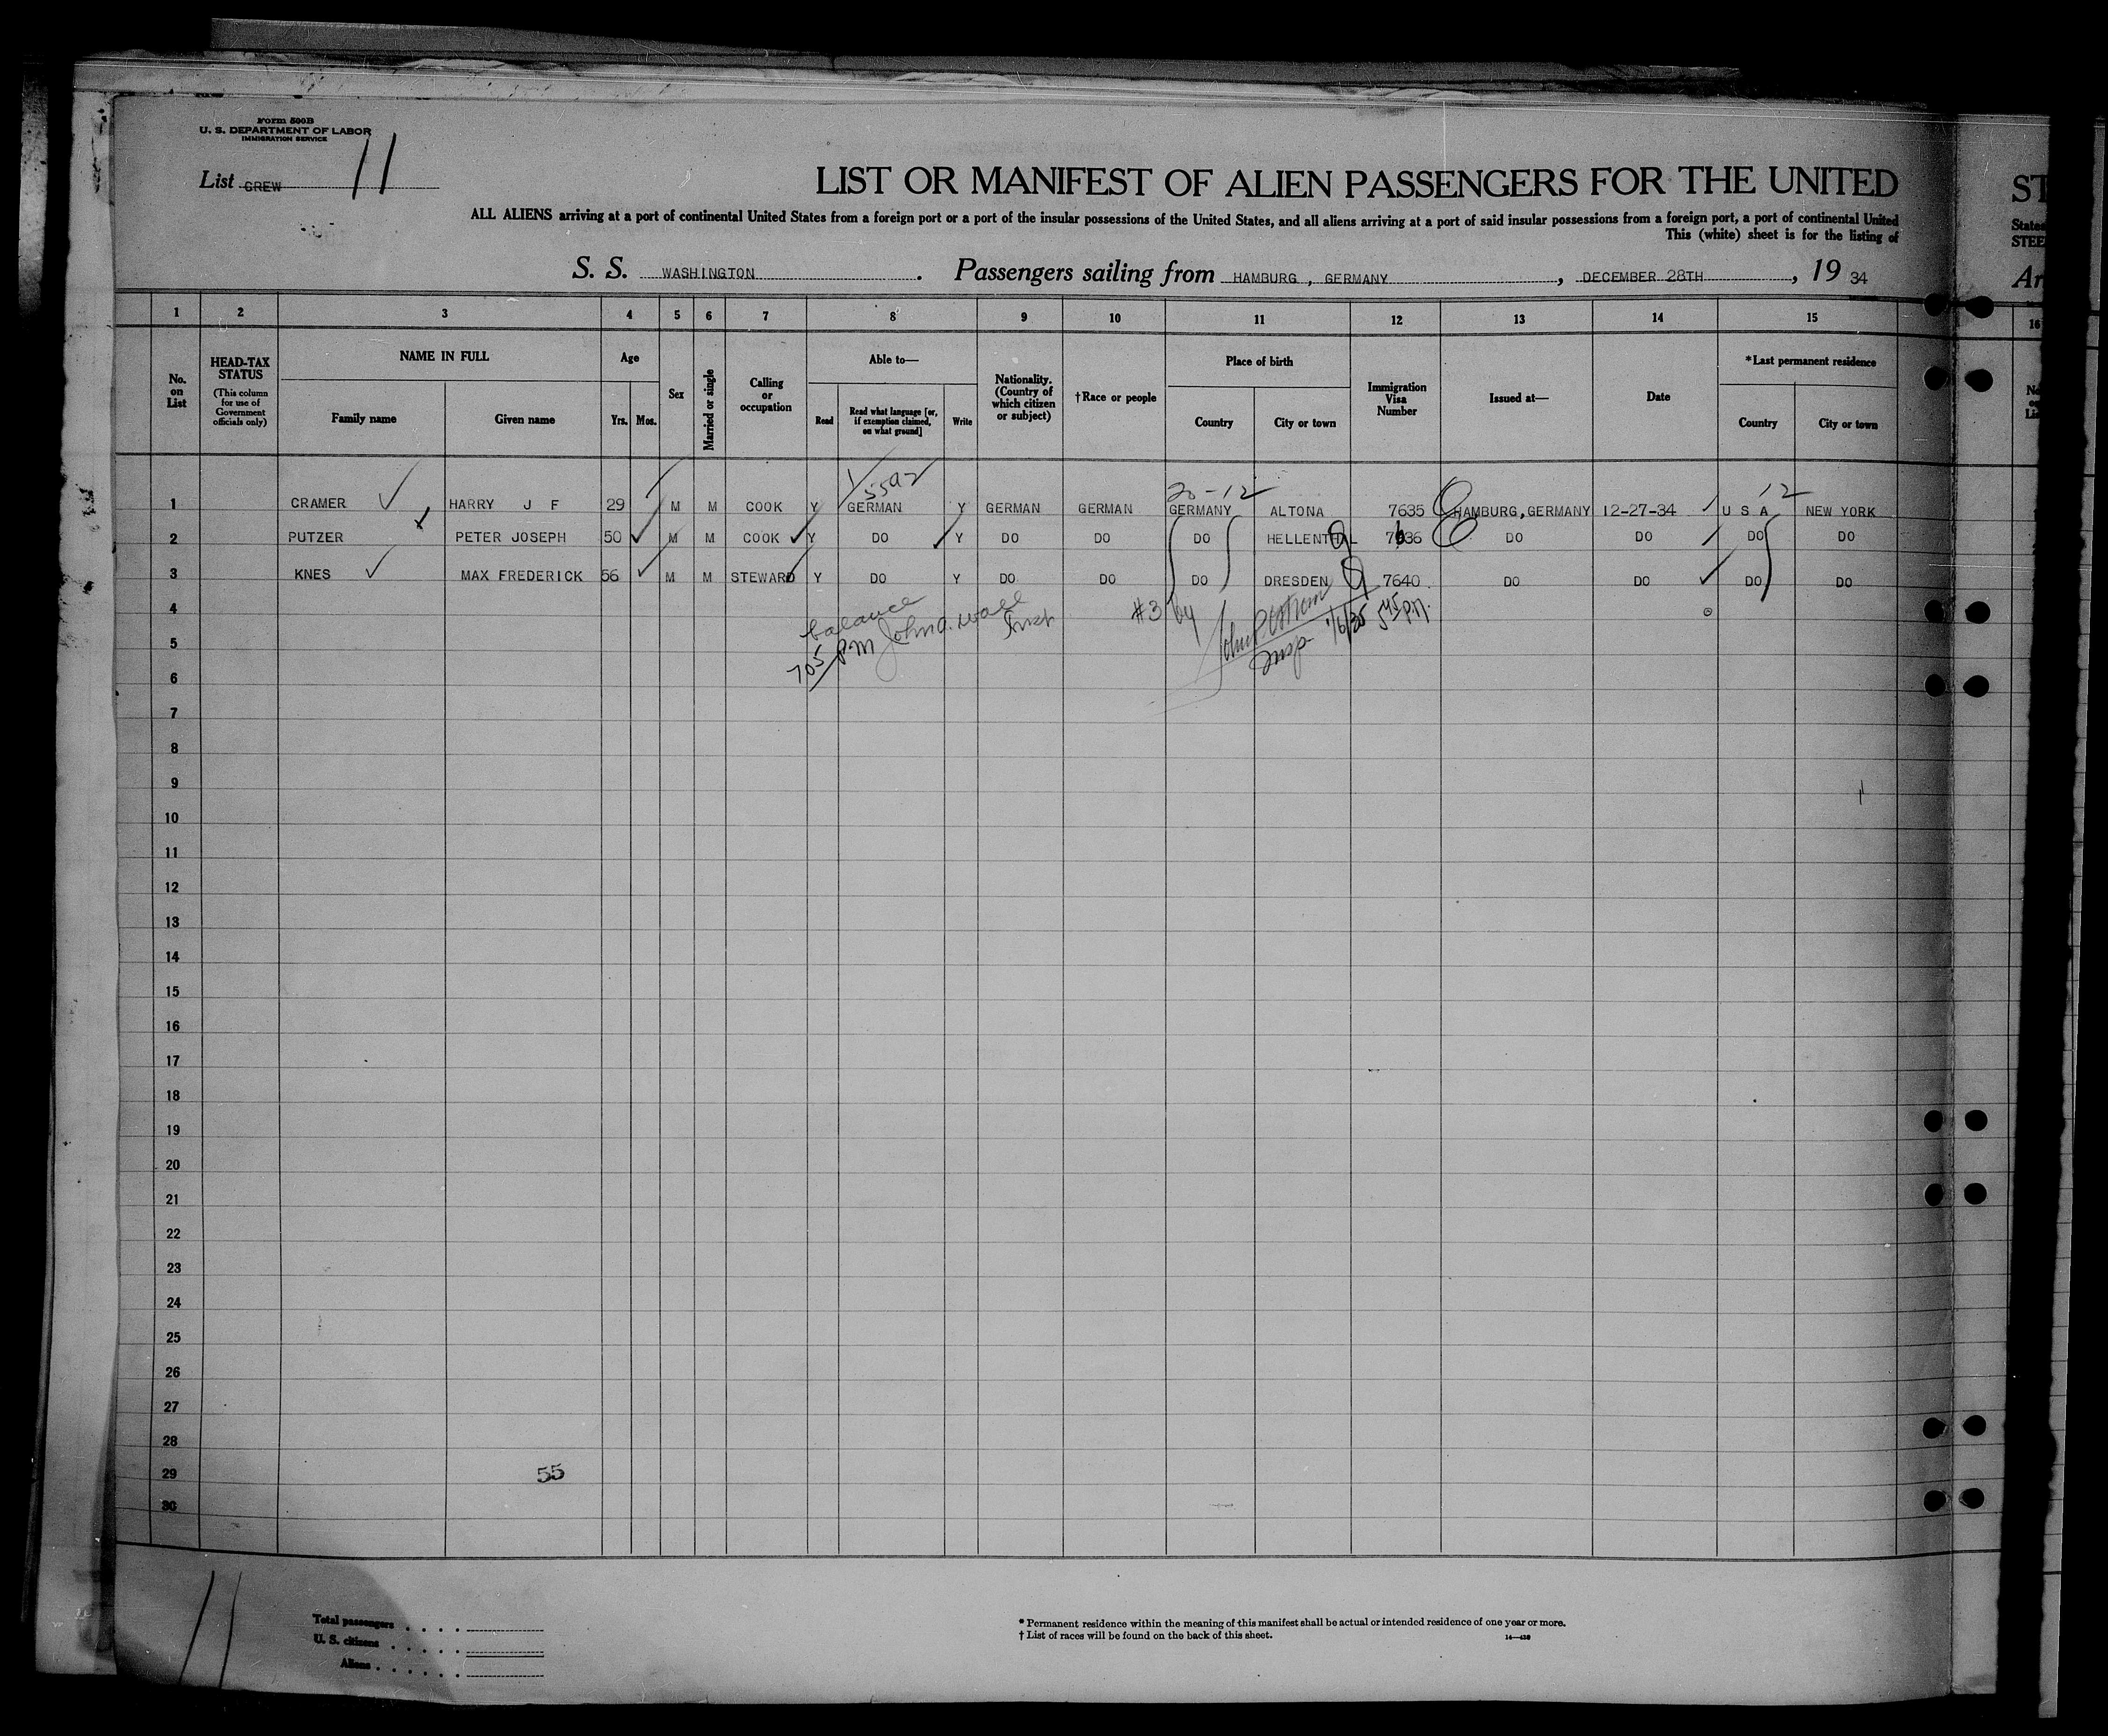 Form 500B
U. S. DEPARTMENT OF LABOR
IMMIGRATION SERVICE
List CREW 11
LIST OR MANIFEST OF ALIEN PASSENGERS FOR THE UNITED
ST
ALL ALIENS arriving at a port of continental United States from a foreign port or a port of the insular possessions of the United States, and all aliens arriving at a port of said insular possessions from a foreign port, a port of continental United
States
This (white) sheet is for the listing of
STEE
S. S. WASHINGTON . Passengers sailing from HAMBURG , GERMANY , DECEMBER 28TH , 19 34
Ar
1 2 3 4 5 6 7 8 9 10 11 12 13 14 15 16
No. on List
HEAD-TAX STATUS
(This column for use of Government officials only)
NAME IN FULL
Family name Given name
Age
Yrs. Mos.
Sex
Married or single
Calling or occupation
Able to—
Read
Read what language [or, if exemption claimed, on what ground]
Write
Nationality. (Country of which citizen or subject)
†Race or people
Place of birth
Country City or town
Immigration Visa Number
Issued at—
Date
*Last permanent residence
Country City or town
1/5592 20-12 12
1 CRAMER HARRY J F 29 M M COOK Y GERMAN Y GERMAN GERMAN GERMANY ALTONA 7635 HAMBURG,GERMANY 12-27-34 U S A NEW YORK
2 PUTZER PETER JOSEPH 50 M M COOK Y DO Y DO DO DO HELLENTHAL 7636 DO DO DO DO
3 KNES MAX FREDERICK 56 M M STEWARD Y DO Y DO DO DO DRESDEN 7640 DO DO DO DO
4
balance John A. Wall Insp
705 PM
#3 by John Insp 1/6/35 545 PM.
5
6
7
8
9
10
11
12
13
14
15
16
17
18
19
20
21
22
23
24
25
26
27
28
29 55
30
11
Total passengers . . . .
U. S. citizens . . . . .
Aliens . . . . . .
* Permanent residence within the meaning of this manifest shall be actual or intended residence of one year or more.
† List of races will be found on the back of this sheet. 14—430